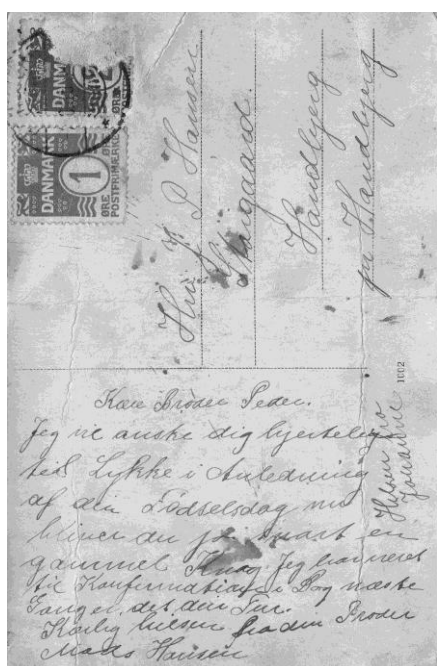 DANMARK
ØRE
DANMARK
1
ØRE
POSTPRIMÆRKE
Hr. P Hansen
Handbjerg
pr Handbjerg
1002
Kære Broder Peder.
Jeg vil ønske dig hjertelig
til Lykke i Anledning
af din Fødselsdag nu
bliver du jo snart en
gammel Knag. Jeg har været
til Konfirmation i Dag næste
Gang er det din Tur.
Kærlig hilsen fra din Broder
Mads Hansen
Hilsen fra
Johanne